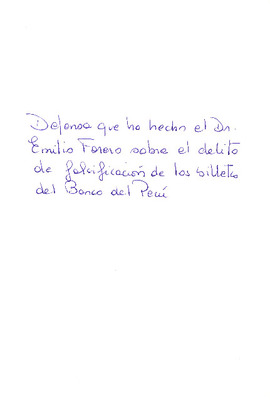 Defensa que ha hecho el Dr.
Emilio Forero sobre el delito
de falsificación de los billetes
del Banco del Perú